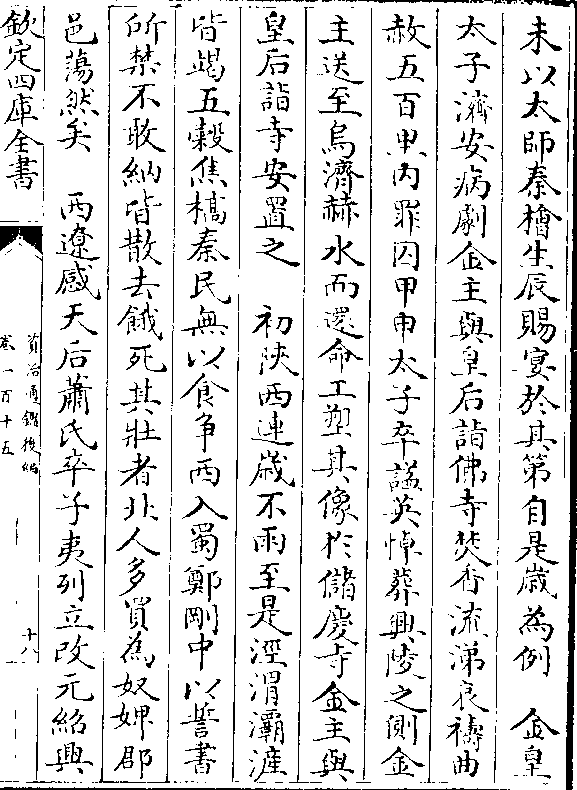 未以太師秦檜生辰賜宴於其第自是歳為例　金皇
太子濟安病劇金主與皇后詣佛寺焚香流涕哀禱曲
赦五百里内罪囚甲申太子卒諡英悼葬興陵之側金
主送至烏濟赫水而還命工塑其像於儲慶寺金主與
皇后詣寺安置之　初陜西連歳不雨至是涇渭灞滻
皆竭五穀焦槁秦民無以食争西入蜀鄭剛中以誓書
所禁不敢納皆散去餓死其壯者北人多買為奴婢郡
邑蕩然矣　西遼感天后蕭氏卒子夷列立改元紹興
欽定四庫全書
資治通鑑後編
卷一百十五
十八